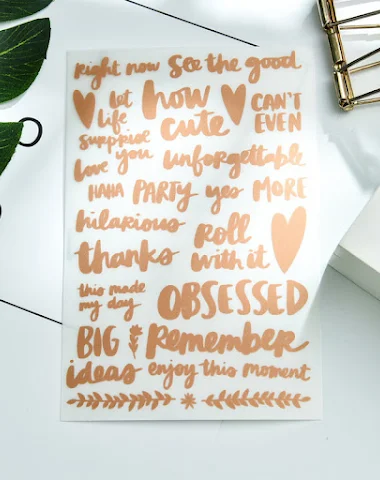 right now see the good
let life surprise
how cute
CAN'T EVEN
love you
unforgettable
HAHA PARTY yes MORE
hilarious
Roll with it
thanks
this made my day
OBSESSED
BIG ideas
Remember
enjoy this moment